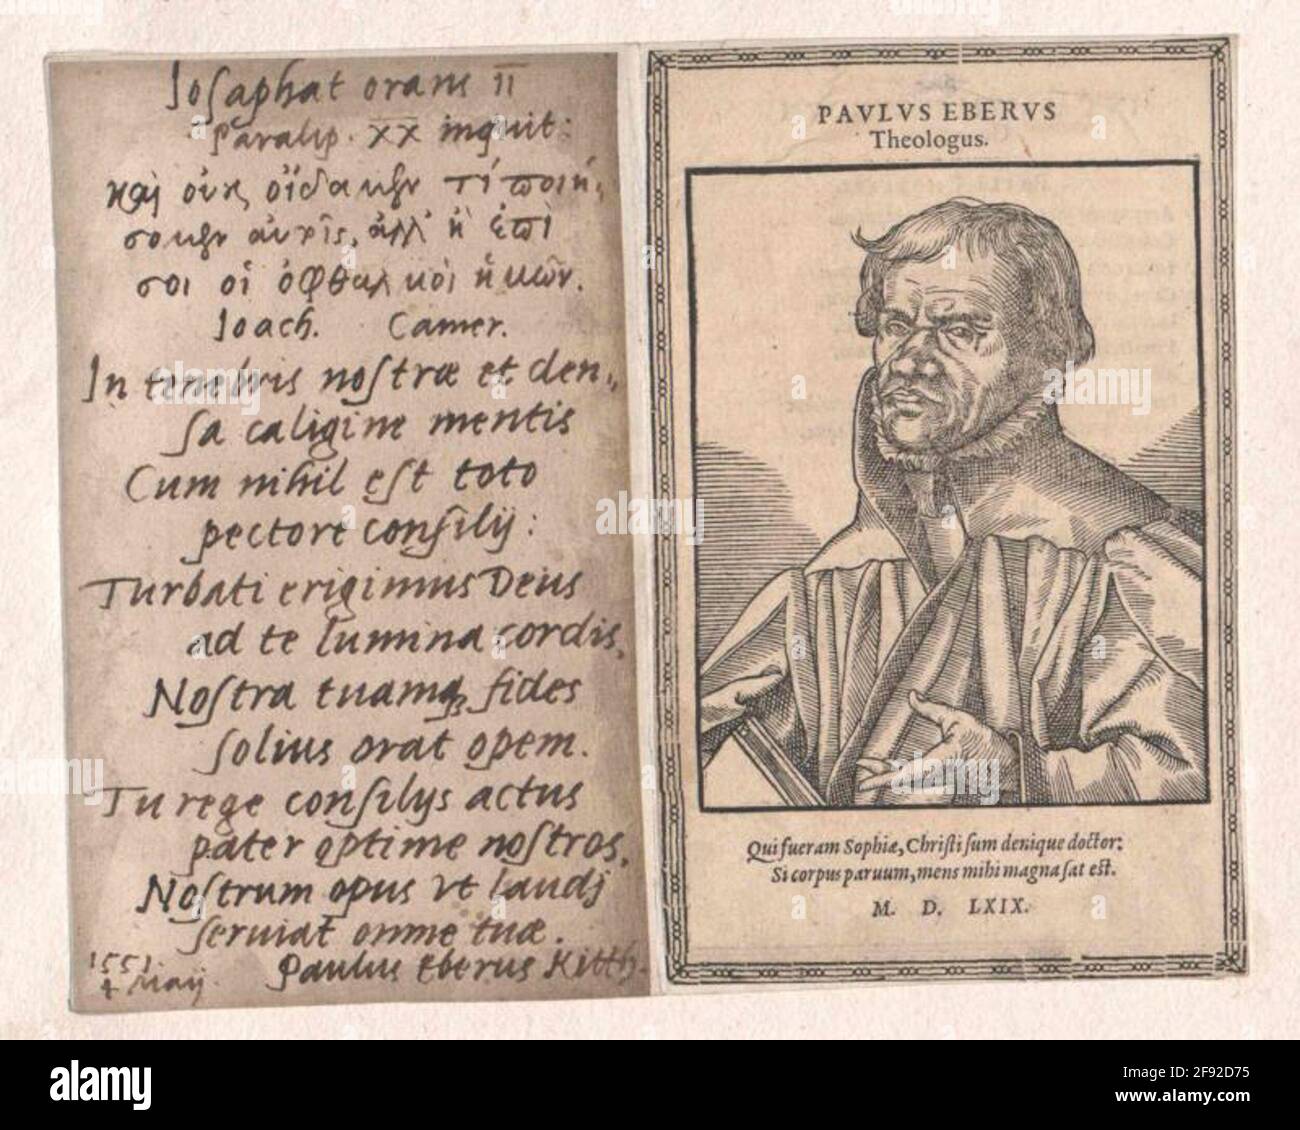 Iosaphat orans II
Paralip. XX inquit:
καὶ οὐκ οἴδαμεν τί ποιή,,
σομεν αὐτοῖς, ἀλλ' ἢ ἐπὶ
σοι οἱ ὀφθαλμοὶ ἡμῶν.
Ioach. Camer.
In tenebris nostræ et den,,
sa caligine mentis
Cum nihil est toto
pectore consilij:
Turbati erigimus Deus
ad te lumina cordis,
Nostra tuamq3 fides
solius orat opem.
Tu rege consilijs actus
pater optime nostros,
Nostrum opus vt laudj
seruiat omne tuæ.
1551
4 Maij.
Paulus Eberus Kitth.
PAVLVS EBERVS
Theologus.
Qui fueram Sophiæ, Christi sum denique doctor:
Si corpus paruum, mens mihi magna sat est.
M. D. LXIX.
alamy
Image ID: 2F92D75
www.alamy.com